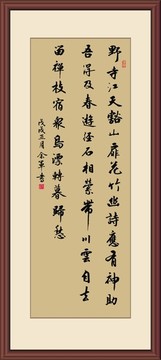 野寺江天豁山扉花竹幽詩應有神助
吾得及春遊径石相縈帶川雲自去
留禪枝宿衆鳥漂轉暮歸愁
戊戌 月 書